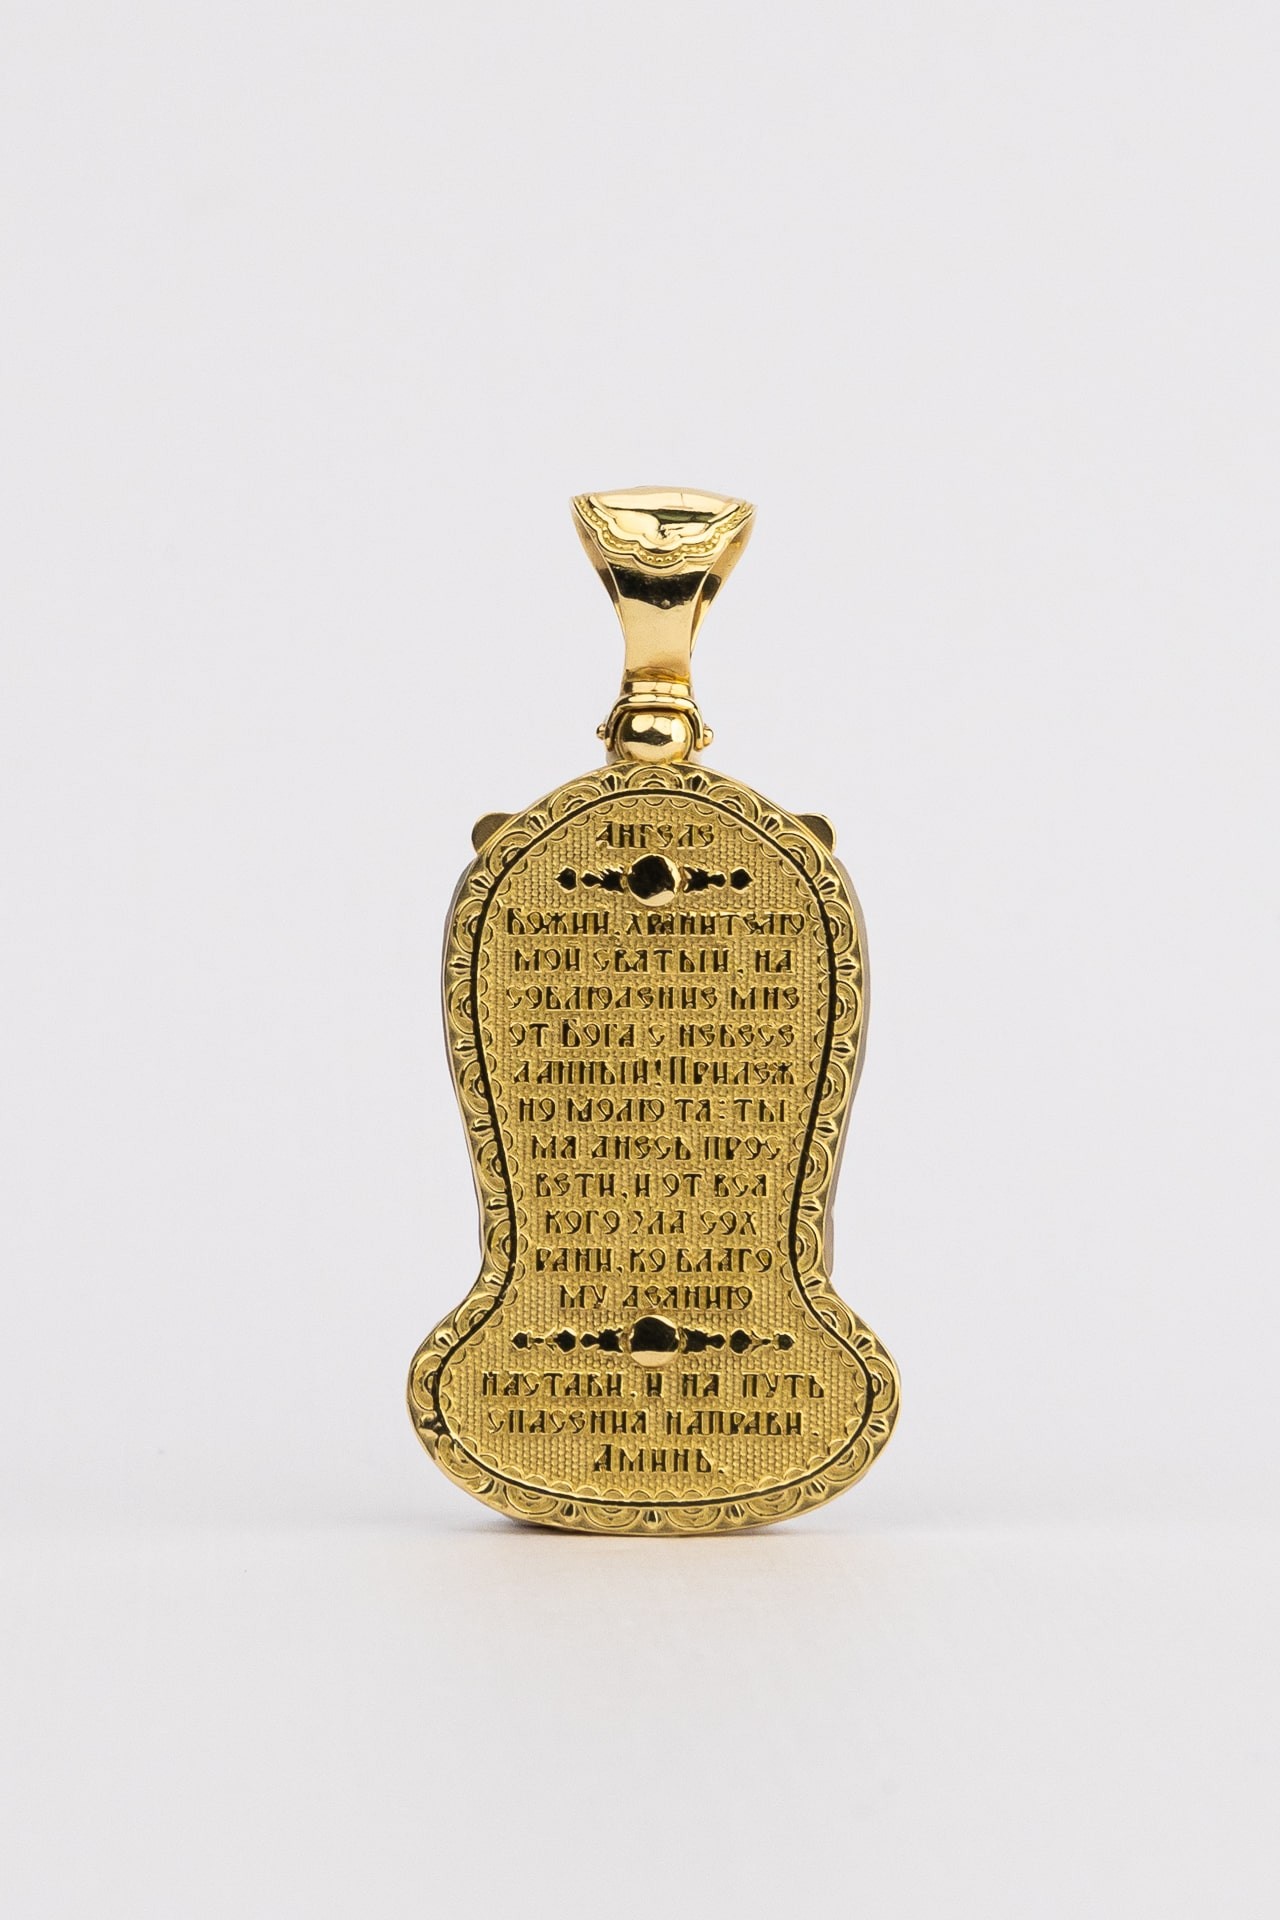 Ангеле
Божий, хранителю
мой святый, на
соблюдение мне
от Бога с небесе
данный! Прилеж
но молю тя: ты
мя днесь прос
вети, и от вся
кого зла сох
рани, ко благо
му деянию
настави, и на путь
спасения направи.
Аминь.